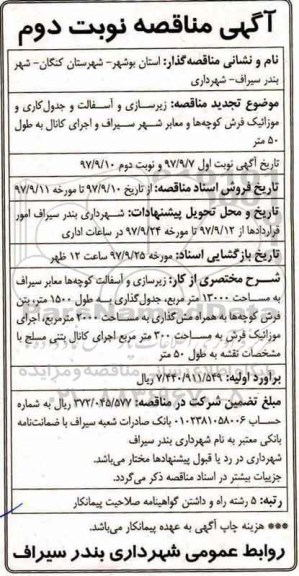 آگهی مناقصه نوبت دوم
نام و نشانی مناقصه‌گذار: استان بوشهر- شهرستان کنگان- شهر
بندر سیراف- شهرداری
موضوع تجدید مناقصه: زیرسازی و آسفالت و جدول‌کاری و
موزائیک فرش کوچه‌ها و معابر شهر سیراف و اجرای کانال به طول
۵۰ متر
تاریخ آگهی نوبت اول ۹۷/۹/۷ و نوبت دوم ۹۷/۹/۱۰
تاریخ فروش اسناد مناقصه: از تاریخ ۹۷/۹/۱۰ تا مورخه ۹۷/۹/۱۱
تاریخ و محل تحویل پیشنهادات: شهرداری بندر سیراف امور
قراردادها از ۹۷/۹/۱۲ تا مورخه ۹۷/۹/۲۴ در ساعات اداری
تاریخ بازگشایی اسناد: مورخه ۹۷/۹/۲۵ ساعت ۱۲ ظهر
شرح مختصری از کار: زیرسازی و آسفالت کوچه‌ها معابر سیراف
به مساحت ۱۳۰۰۰ متر مربع، جدول‌گذاری به طول ۱۵۰۰ متر، بتن
فرش کوچه‌ها به همراه مش‌گذاری به مساحت ۲۰۰۰ مترمربع، اجرای
موزائیک فرش به مساحت ۳۰۰ متر مربع اجرای کانال بتنی مسلح با
مشخصات نقشه به طول ۵۰ متر
برآورد اولیه: ۷/۴۴۰/۹۱۱/۵۴۹ ریال
مبلغ تضمین شرکت در مناقصه: ۳۷۲/۰۴۵/۵۷۷ ریال به شماره
حساب ۰۱۰۲۳۸۱۰۵۸۰۰۶ بانک صادرات شعبه سیراف یا ضمانت‌نامه
بانکی معتبر به نام شهرداری بندر سیراف
شهرداری در رد یا قبول پیشنهادها مختار می‌باشد.
جزییات بیشتر در اسناد مناقصه ذکر می‌گردد.
رتبه: ۵ رشته راه و داشتن گواهینامه صلاحیت پیمانکار
*** هزینه چاپ آگهی به عهده پیمانکار می‌باشد.
روابط عمومی شهرداری بندر سیراف